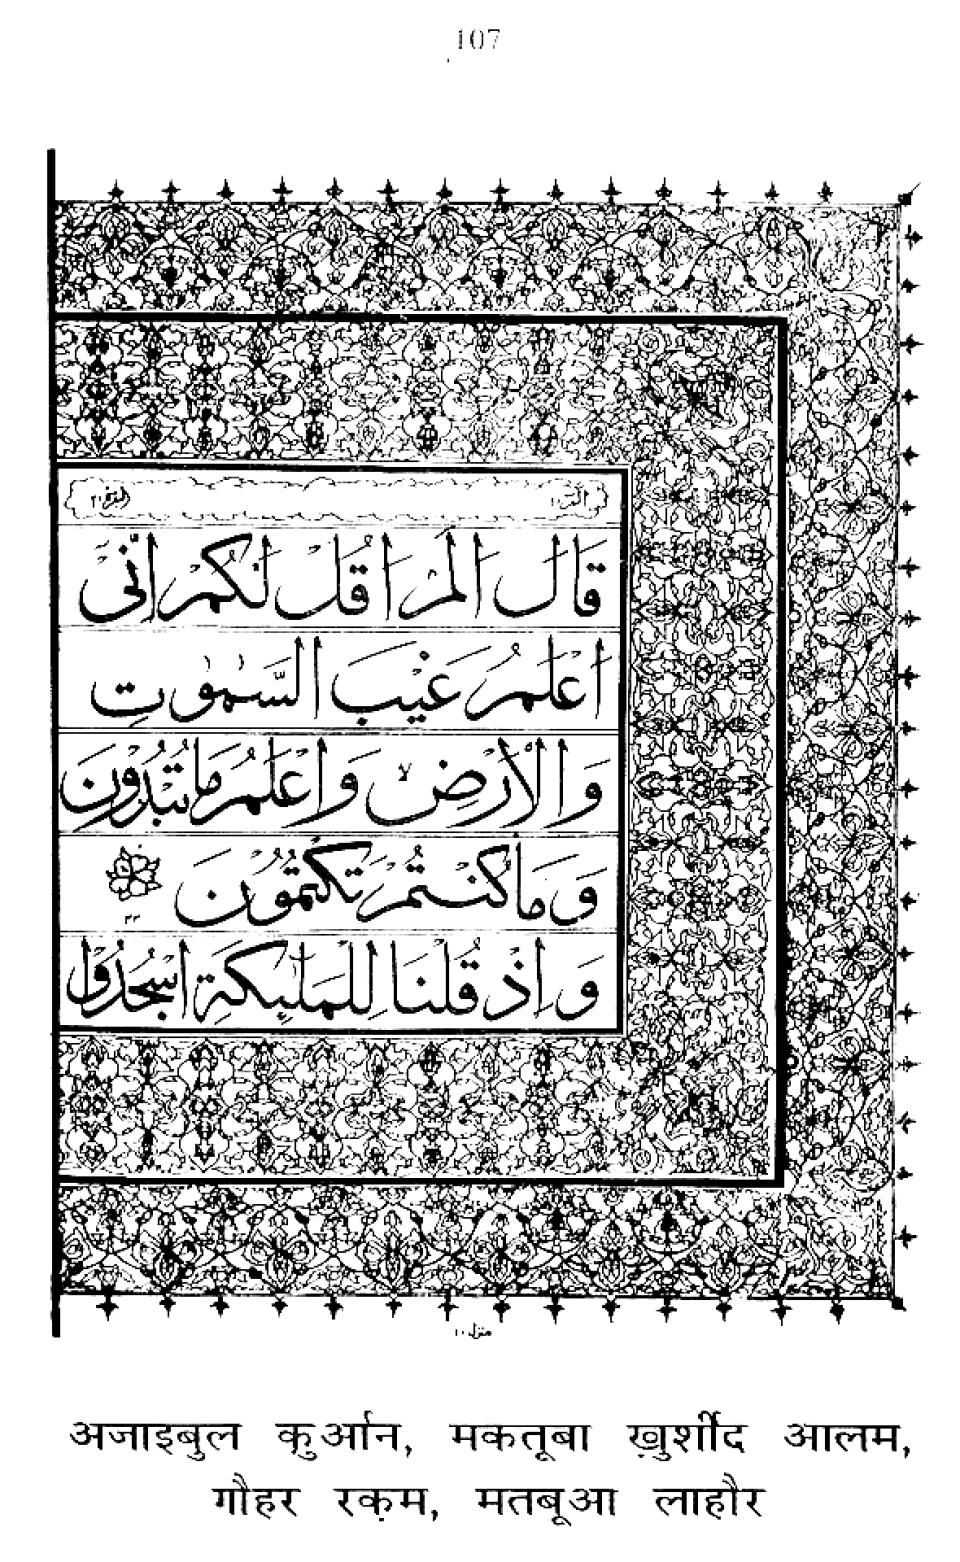 107
البقرة ٢
الٓمّٓ ١
قَالَ اَلَمْ اَقُلْ لَّكُمْ اِنِّیْۤ
اَعْلَمُ غَیْبَ السَّمٰوٰتِ
وَ الْاَرْضِ ۙ وَ اَعْلَمُ مَا تُبْدُوْنَ
وَ مَا كُنْتُمْ تَكْتُمُوْنَ
٣٣
وَ اِذْ قُلْنَا لِلْمَلٰٓىِٕكَةِ اسْجُدُوْا
منزل ١
अजाइबुल क़ुर्आन, मकतूबा ख़ुर्शीद आलम,
गौहर रक़म, मतबूआ लाहौर